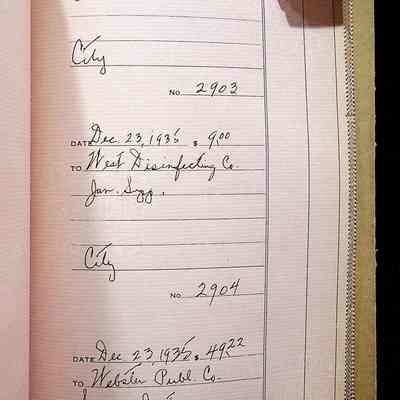 City
No 2903
DATE Dec. 23, 1935 $ 9.00
TO West Disinfecting Co.
Jan. Supp.
City
No 2904
DATE Dec 23 1935 $ 49.22
TO Webster Publ. Co.